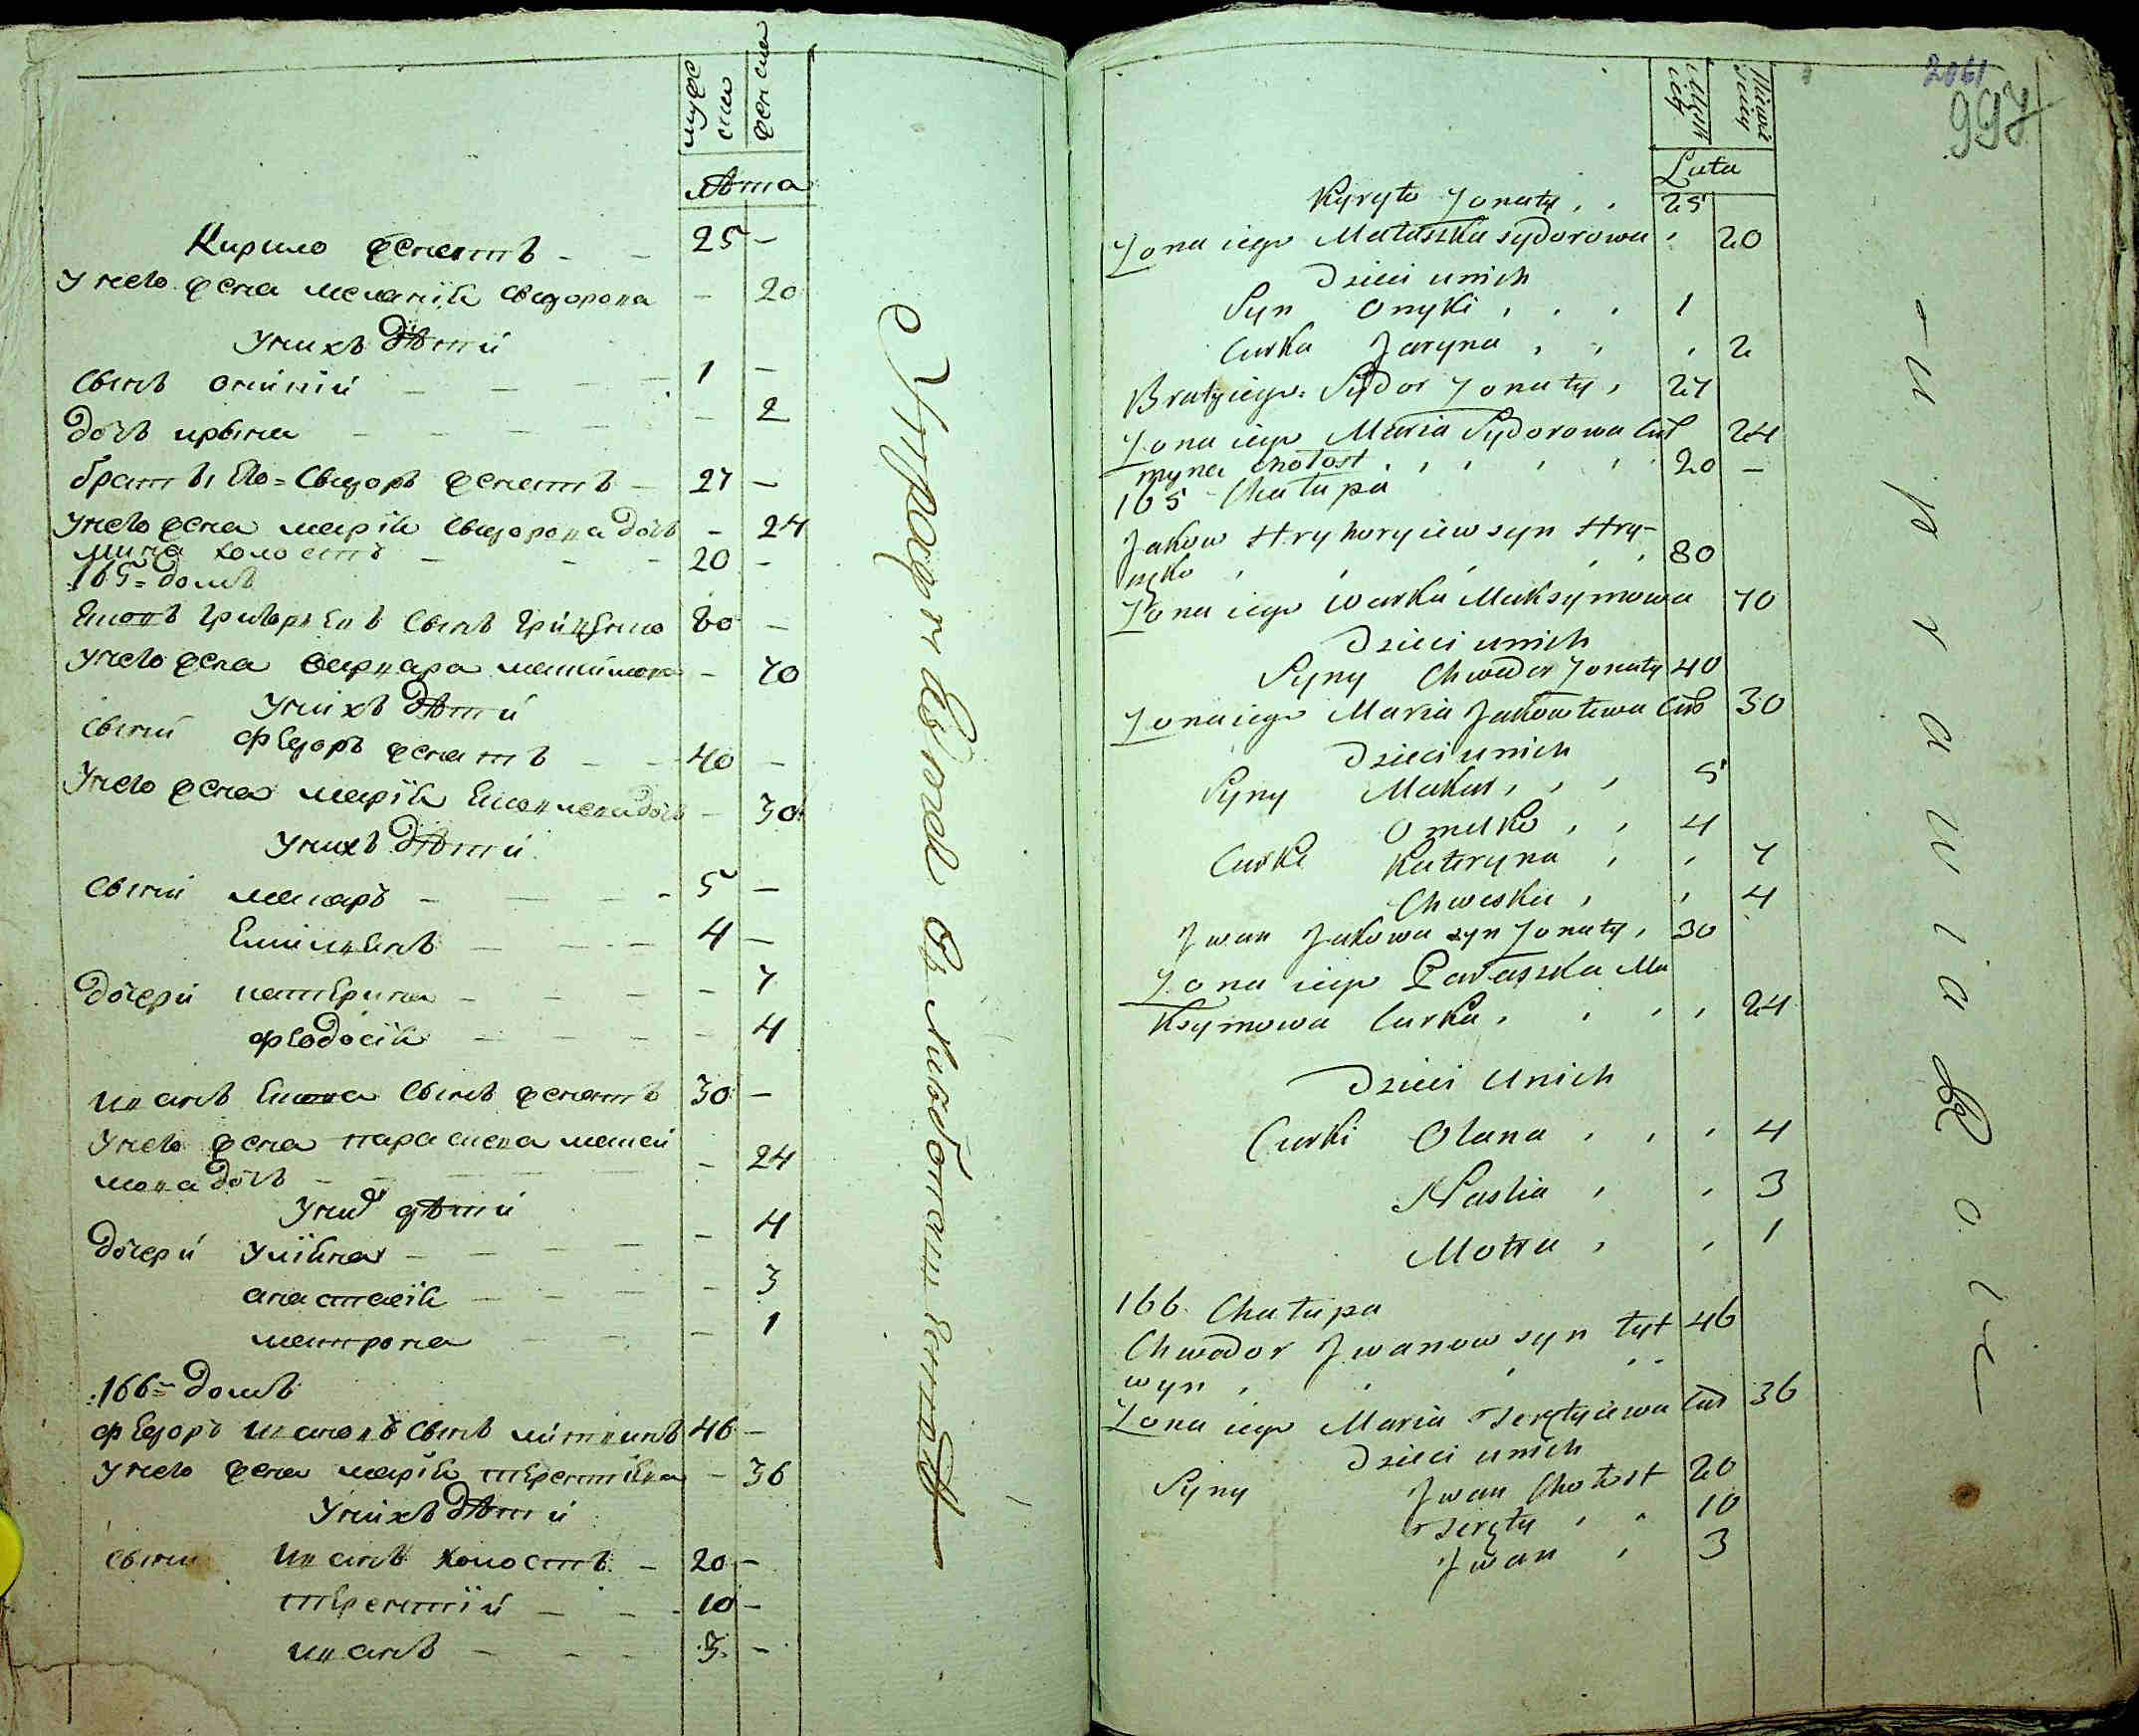 мужс
ски
женска
лѣта
Кирило женатъ - - 25 -
У него жена меланія Сидорова - 20
У нихъ дѣти
Сынъ оникій - - - 1 -
дочь ирына - - - - - 2
братъ Его = Сидоръ женатъ - 27 -
У него жена марія Сидорова дочь - 24
мина холостъ - - - 20 -
165 = домъ
Яковъ григорьевъ Сынъ гриценко 80 -
У него жена варвара максимова - 70
У нихъ дѣти
Сыны Федоръ женатъ - - 40 -
У него жена марія Яковлева дочь - 30
У нихъ дѣти
Сыны макаръ - - - - 5 -
Емиліянъ - - - 4 -
дочери катерина - - - - 7
феодосія - - - - 4
иванъ Якова Сынъ женатъ 30 -
У него жена параскева макси
мова дочь - - - - 24
У нихъ дѣти
дочери Уліяна - - - - 4
анастасія - - - - 3
матрона - - - 1
166 = домъ
Федоръ ивановъ Сынъ литвинъ 46 -
У него жена марія терентіева - 36
У нихъ дѣти
Сыны иванъ холостъ - 20 -
терентій - - - 10 -
иванъ - - - 3 -
въ
2061
997
Lata
Kyryło Żonaty 25
Żona iego Małaszka Sydorowa 20
Dzieci u nich
Syn Onyki 1
Curka Jaryna 2
Braty iego = Sydor Żonaty 27
Żona iego Maria Sydorowa Cur 24
myna chołost 20 -
165 Chałupa
Jakow Hryhoryiew syn Hry-
cko 80
Żona iego Warka Maksymowa 70
Dzieci u nich
Syny Chwedor Żonaty 40
Żona iego Maria Jakowlewa Cur 30
Dzieci u nich
Syny Makar 5
Omelko 4
Curki Kateryna 7
Chweska 4
Jwan Jakowa syn Żonaty 30
Żona iego Paraszka Ma
ksymowa Curka 24
Dzieci u nich
Curki Olana 4
Nastia 3
Motra 1
166 Chałupa
Chwedor Jwanow syn Łyt 46
wyn
Żona iego Maria Tereștyiewa Cur 36
Dzieci u nich
Syny Jwan Chołost 20
10
Jwan 3